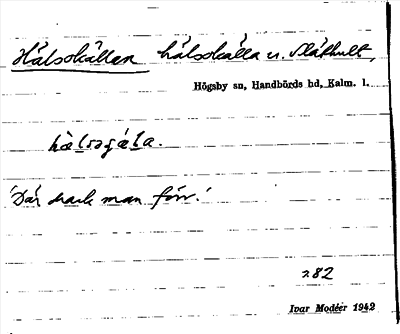 Hälsokällan hälsokälla n. Släthult,
Högsby sn, Handbörds hd, Kalm. l.
hä̀lsoɡä́la.
'Där drack man förr.'
282
Ivar Modéer 1942